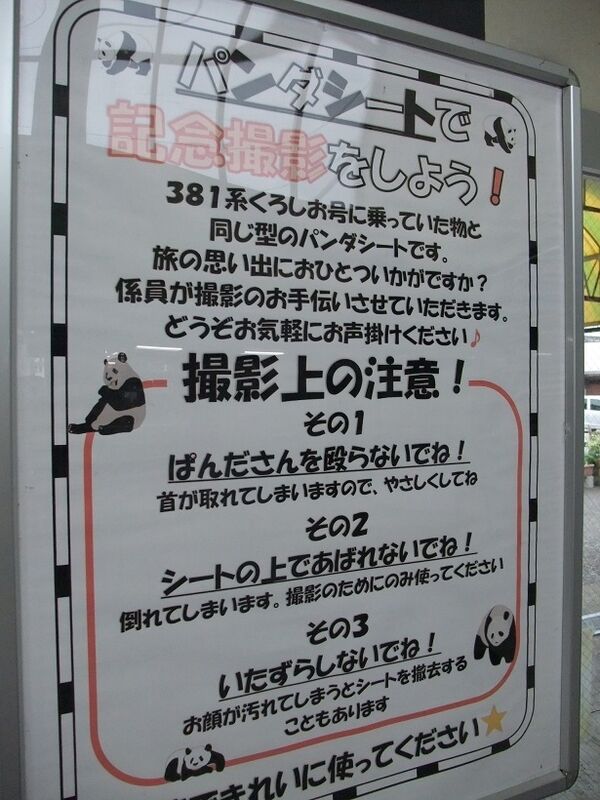 パンダシートで
記念撮影をしよう！
381系くろしお号に乗っていた物と
同じ型のパンダシートです。
旅の思い出におひとついかがですか？
係員が撮影のお手伝いさせていただきます。
どうぞお気軽にお声掛けください♪
撮影上の注意！
その1
ぱんださんを殴らないでね！
首が取れてしまいますので、やさしくしてね
その2
シートの上であばれないでね！
倒れてしまいます。撮影のためにのみ使ってください
その3
いたずらしないでね！
お顔が汚れてしまうとシートを撤去する
こともあります
できれいに使ってください★